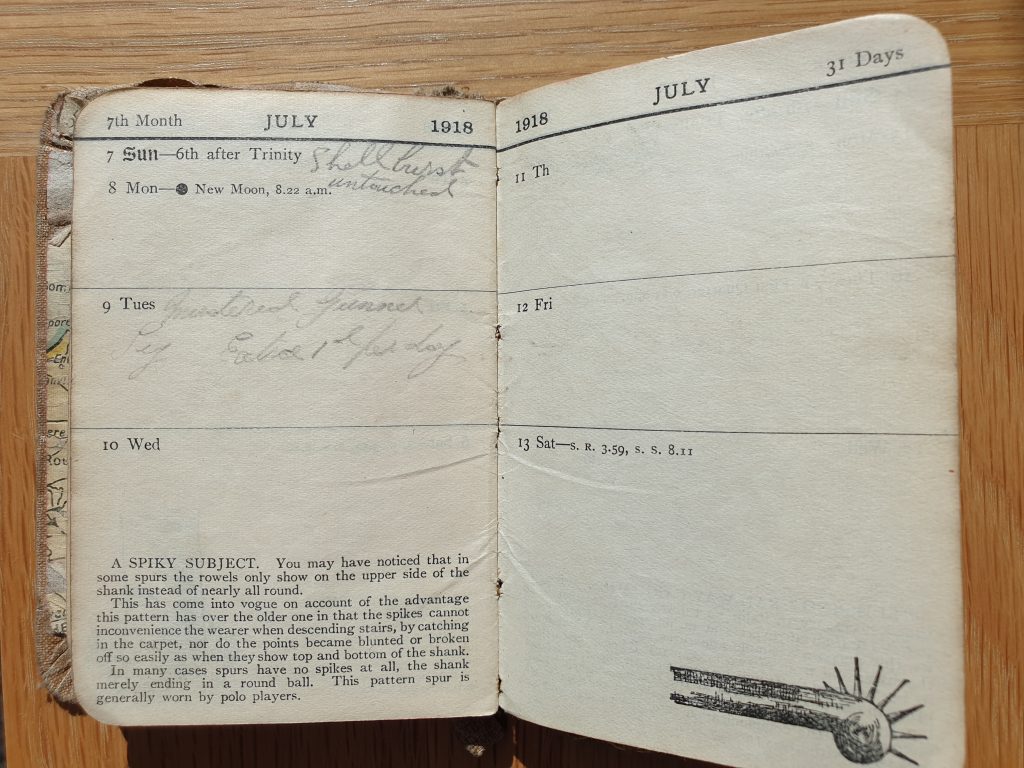 7th Month JULY 1918
7 Sun—6th after Trinity Shell burst
8 Mon—● New Moon, 8.22 a.m. untouched
9 Tues Mustered Gunner
10 Wed
A SPIKY SUBJECT. You may have noticed that in
some spurs the rowels only show on the upper side of the
shank instead of nearly all round.
This has come into vogue on account of the advantage
this pattern has over the older one in that the spikes cannot
inconvenience the wearer when descending stairs, by catching
in the carpet, nor do the points became blunted or broken
off so easily as when they show top and bottom of the shank.
In many cases spurs have no spikes at all, the shank
merely ending in a round ball. This pattern spur is
generally worn by polo players.
1918 JULY 31 Days
11 Th
12 Fri
13 Sat—S. R. 3.59, S. S. 8.11